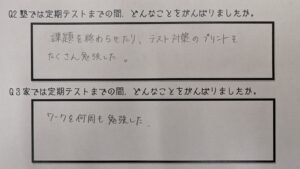 Q2 塾では定期テストまでの間、どんなことをがんばりましたか。
課題を終わらせたり、テスト対策のプリントも
たくさん勉強した。
Q3 家では定期テストまでの間、どんなことをがんばりましたか。
ワークを何周も勉強した。